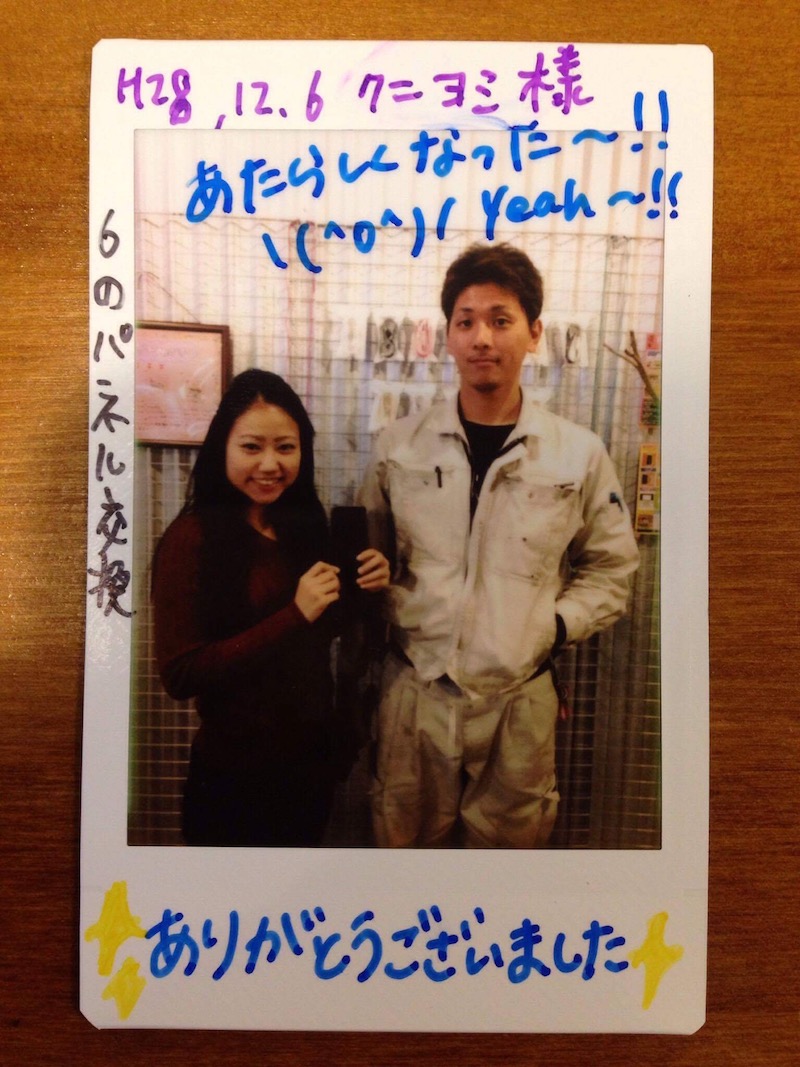 H28,12.6 クニヨミ様
あたらしくなった〜!!
\(^0^)/ Yeah〜!!
6のパネル交換
ありがとうございました